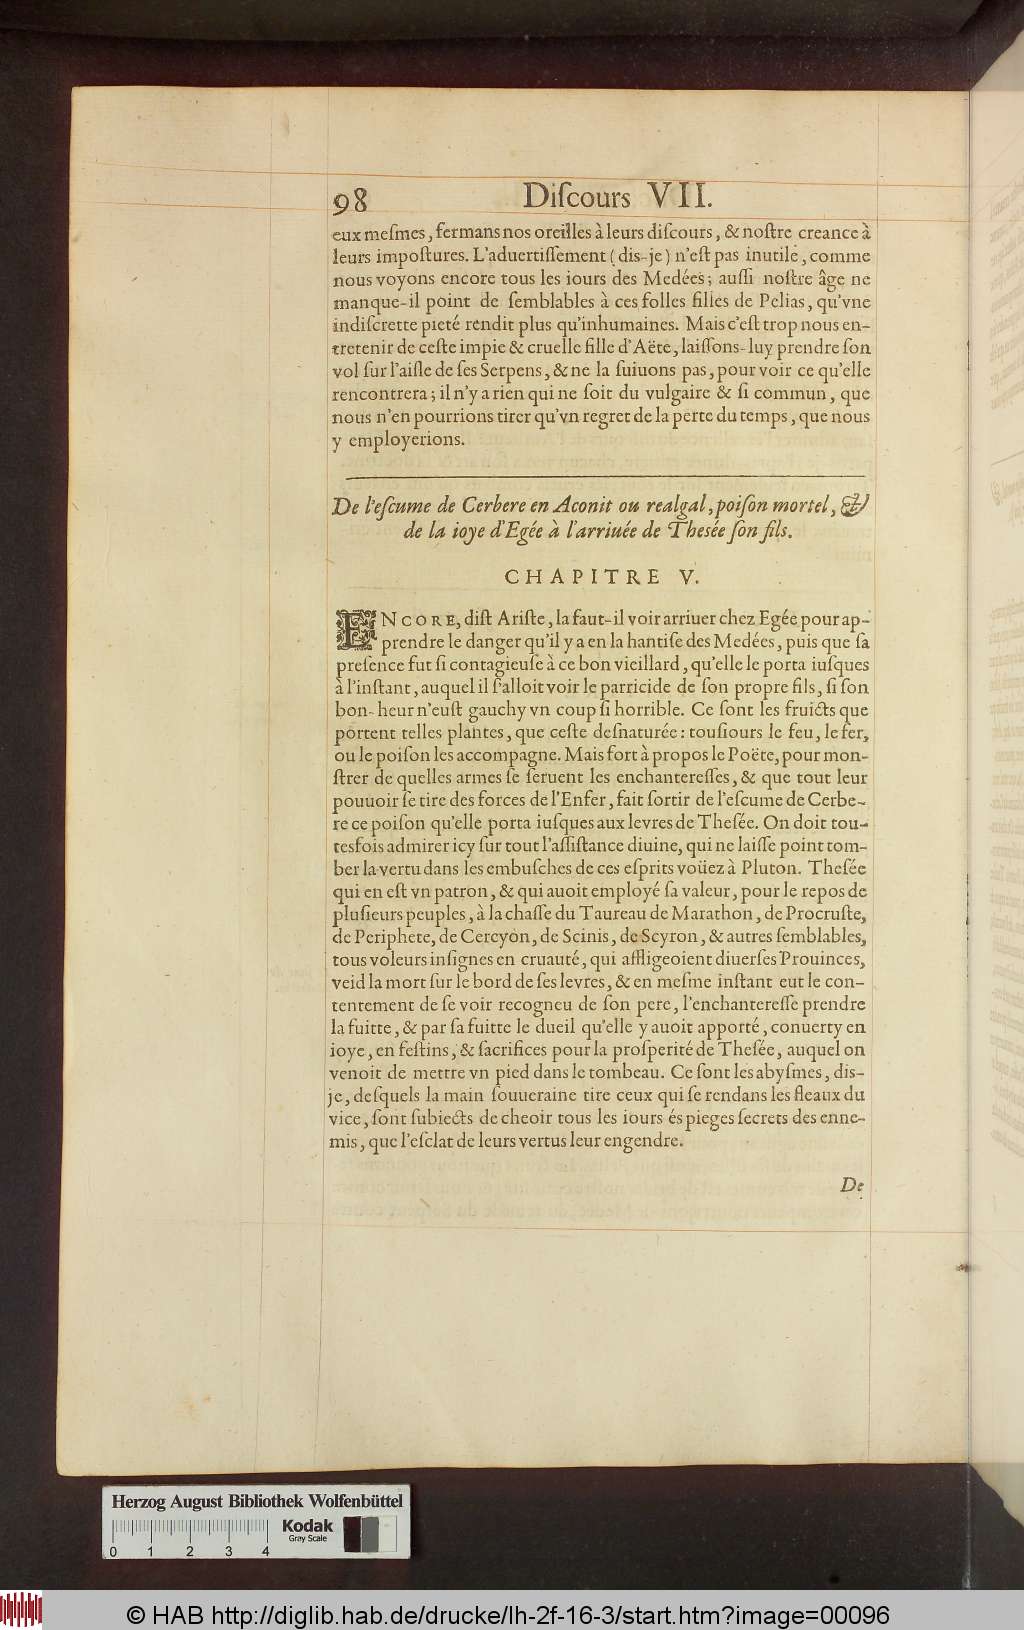 98 Diſcours VII.
eux meſmes, fermans nos oreilles à leurs diſcours, & noſtre creance à
leurs impoſtures. L'aduertiſſement (dis-je) n'eſt pas inutile, comme
nous voyons encore tous les iours des Medées; auſſi noſtre âge ne
manque-il point de ſemblables à ces folles filles de Pelias, qu'vne
indiſcrette pieté rendit plus qu'inhumaines. Mais c'eſt trop nous en-
tretenir de ceſte impie & cruelle fille d'Aëte, laiſſons-luy prendre ſon
vol ſur l'aiſle de ſes Serpens, & ne la ſuiuons pas, pour voir ce qu'elle
rencontrera; il n'y a rien qui ne ſoit du vulgaire & ſi commun, que
nous n'en pourrions tirer qu'vn regret de la perte du temps, que nous
y employerions.
De l'eſcume de Cerbere en Aconit ou realgal, poiſon mortel, &
de la ioye d'Egée à l'arriuée de Theſée ſon fils.
CHAPITRE V.
ENCORE, diſt Ariſte, la faut-il voir arriuer chez Egée pour ap-
prendre le danger qu'il y a en la hantiſe des Medées, puis que ſa
preſence fut ſi contagieuſe à ce bon vieillard, qu'elle le porta iuſques
à l'inſtant, auquel il ſ'alloit voir le parricide de ſon propre fils, ſi ſon
bon-heur n'euſt gauchy vn coup ſi horrible. Ce ſont les fruicts que
portent telles plantes, que ceſte deſnaturée: touſiours le feu, le fer,
ou le poiſon les accompagne. Mais fort à propos le Poëte, pour mon-
ſtrer de quelles armes ſe ſeruent les enchantereſſes, & que tout leur
pouuoir ſe tire des forces de l'Enfer, fait ſortir de l'eſcume de Cerbe-
re ce poiſon qu'elle porta iuſques aux levres de Theſée. On doit tou-
tesfois admirer icy ſur tout l'aſſiſtance diuine, qui ne laiſſe point tom-
ber la vertu dans les embuſches de ces eſprits voüez à Pluton. Theſée
qui en eſt vn patron, & qui auoit employé ſa valeur, pour le repos de
pluſieurs peuples, à la chaſſe du Taureau de Marathon, de Procruſte,
de Periphete, de Cercyon, de Scinis, de Scyron, & autres ſemblables,
tous voleurs inſignes en cruauté, qui affligeoient diuerſes Prouinces,
veid la mort ſur le bord de ſes levres, & en meſme inſtant eut le con-
tentement de ſe voir recogneu de ſon pere, l'enchantereſſe prendre
la fuitte, & par ſa fuitte le dueil qu'elle y auoit apporté, conuerty en
ioye, en feſtins, & ſacrifices pour la proſperité de Theſée, auquel on
venoit de mettre vn pied dans le tombeau. Ce ſont les abyſmes, dis-
je, deſquels la main ſouueraine tire ceux qui ſe rendans les fleaux du
vice, ſont ſubiects de cheoir tous les iours és pieges ſecrets des enne-
mis, que l'eſclat de leurs vertus leur engendre.
De
Herzog August Bibliothek Wolfenbüttel
Kodak
Gray Scale
0 1 2 3 4
© HAB http://diglib.hab.de/drucke/lh-2f-16-3/start.htm?image=00096